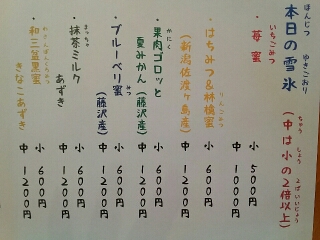 ほんじつ ゆきごおり
本日の雪氷
ちゅう しょう ばいいじょう
(中は小の2倍以上)
いちごみつ
・苺蜜
小 500円
中 1000円
りんごみつ
・はちみつ&林檎蜜
(新潟佐渡ヶ島産)
小 600円
中 1200円
かにく
・果肉ゴロッと
夏みかん(藤沢産)
小 600円
中 1200円
・ブルーベリ蜜
(藤沢産)
小 600円
中 1200円
まっちゃ
・抹茶ミルク
あずき
小 600円
中 1200円
わさんぼんくろみつ
・和三盆黒蜜
きなこあずき
小 600円
中 1200円